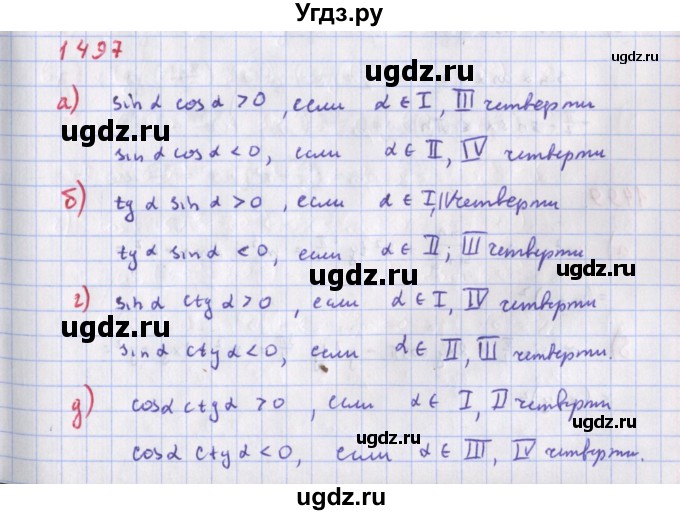 Угдз.ру
1497
а) sin α cos α > 0, если α ∈ I, III четверти
ugdz.ru ugdz.ru
sin α cos α < 0, если α ∈ II, IV четверти
ugdz.ru
б) tg α sin α > 0, если α ∈ I, IV четверти
tg α sin α < 0, если α ∈ II; III четверти
ugdz.ru
г) sin α ctg α > 0, если α ∈ I, IV четверти
ugdz.ru
sin α ctg α < 0, если α ∈ II, III четверти.
ugdz.ru
д) cos α ctg α > 0, если α ∈ I, II четверти
ugdz.ru
cos α ctg α < 0, если α ∈ III, IV четверти.
ugdz.ru